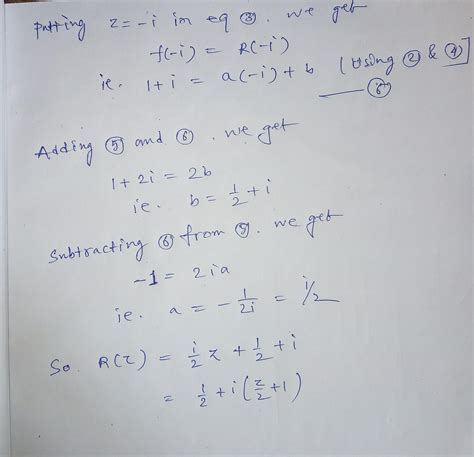 Putting z = -i in eq ③. we get
f(-i) = R(-i)
ie. 1+i = a(-i)+b (Using ② & ④]
——— ⑥
Adding ⑤ and ⑥. we get
1+2i = 2b
ie. b = 1/2 + i
Subtracting ⑥ from ⑤. we get
-1 = 2ia
ie. a = - 1/2i = i/2
So R(z) = i/2 z + 1/2 + i
= 1/2 + i(z/2 + 1)